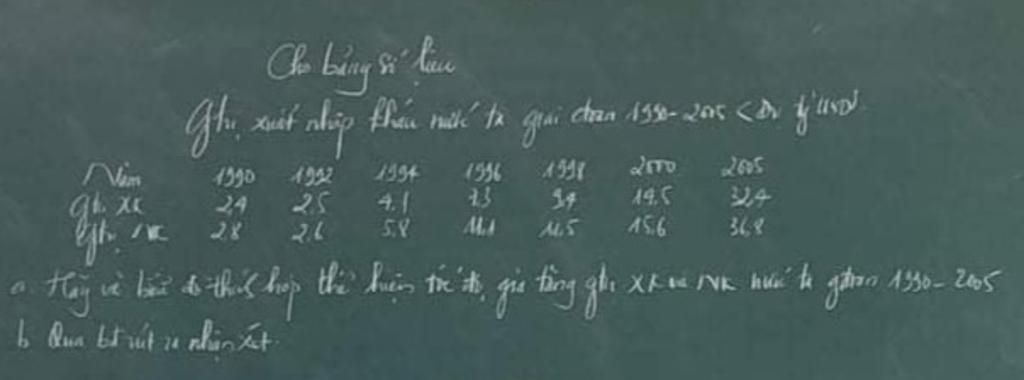 Cho bảng số liệu
Gtrị xuất nhập khẩu nước ta giai đoạn 1990-2005 < Đv tỷ USD
Năm 1990 1992 1994 1996 1998 2000 2005
gtrị XK 2.4 2.5 4.1 7.3 9.4 14.5 32.4
gtrị NK 2.8 2.6 5.8 11.1 11.5 15.6 36.8
a Hãy vẽ biểu đồ thích hợp thể hiện tốc độ gia tăng gtrị XK và NK nước ta gđoạn 1990-2005
b Qua bđ rút ra nhận xét.